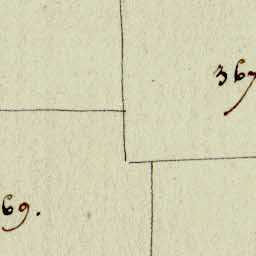 367
69.